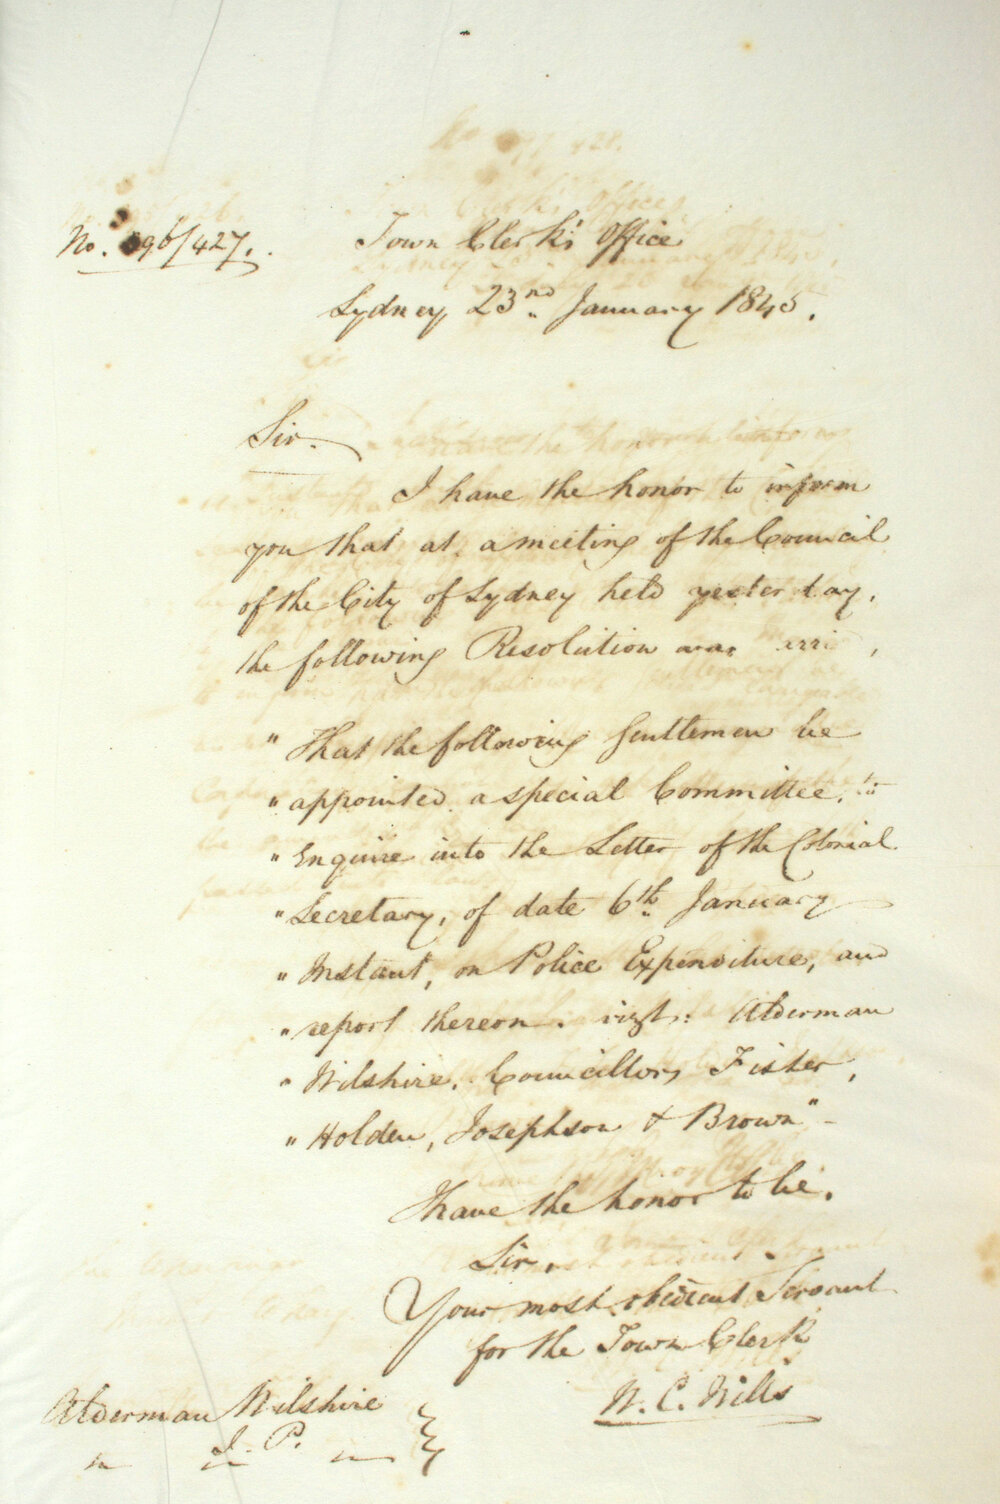 No. 96/427.
Town Clerk's Office
Sydney 23nd January 1845.
Sir.
I have the honor to inform
you that at a meeting of the Council
of the City of Sydney held yesterday.
the following Resolution was
"That the following Gentlemen be
"appointed a special Committee. to
"Enquire into the Letter of the Colonial
"Secretary, of date 6th January
"Instant, on Police Expenditure, and
"report thereon. vizt: Alderman
"Wilshire. Councillors Fisher,
"Holden, Josephson & Brown"
I have the honor to be.
Sir.
Your most obedient Servant
for the Town Clerk
W. C. Wills
Alderman Wilshire
" J. P. "